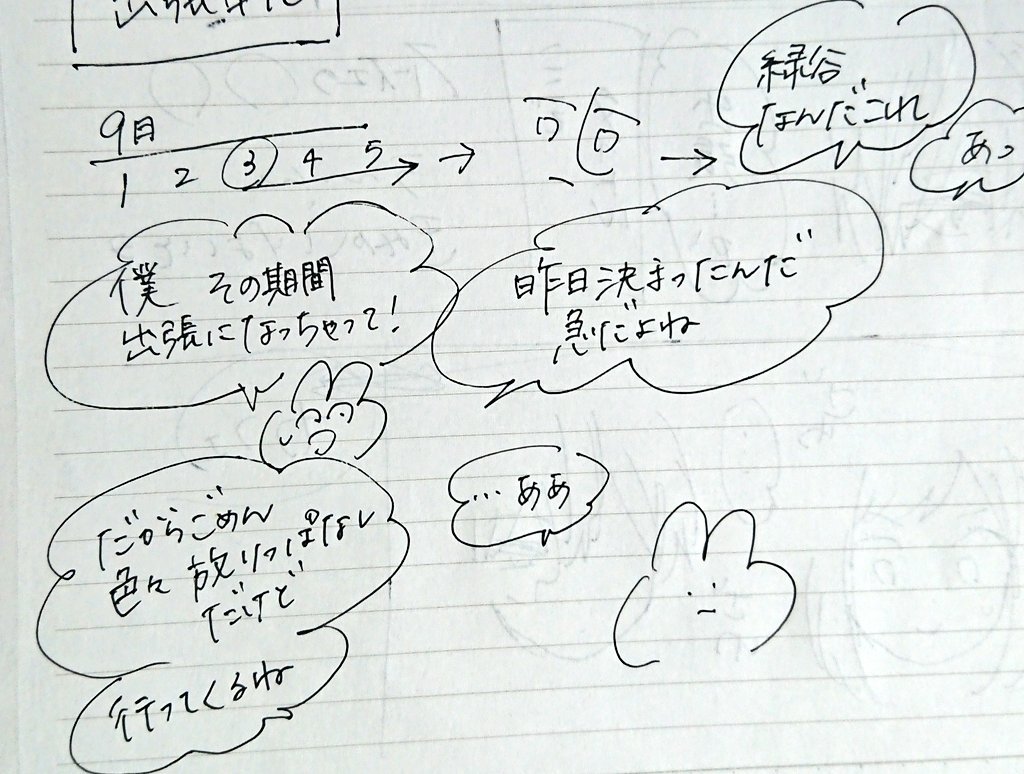 出張中だ
9月
1 2 ③ 4 5
緑谷
なんだこれ
あっ
僕 その期間
出張になっちゃって!
昨日決まったんだ
急だよね
だからごめん
色々放りっぱなし
だけど
…ああ
行ってくるね